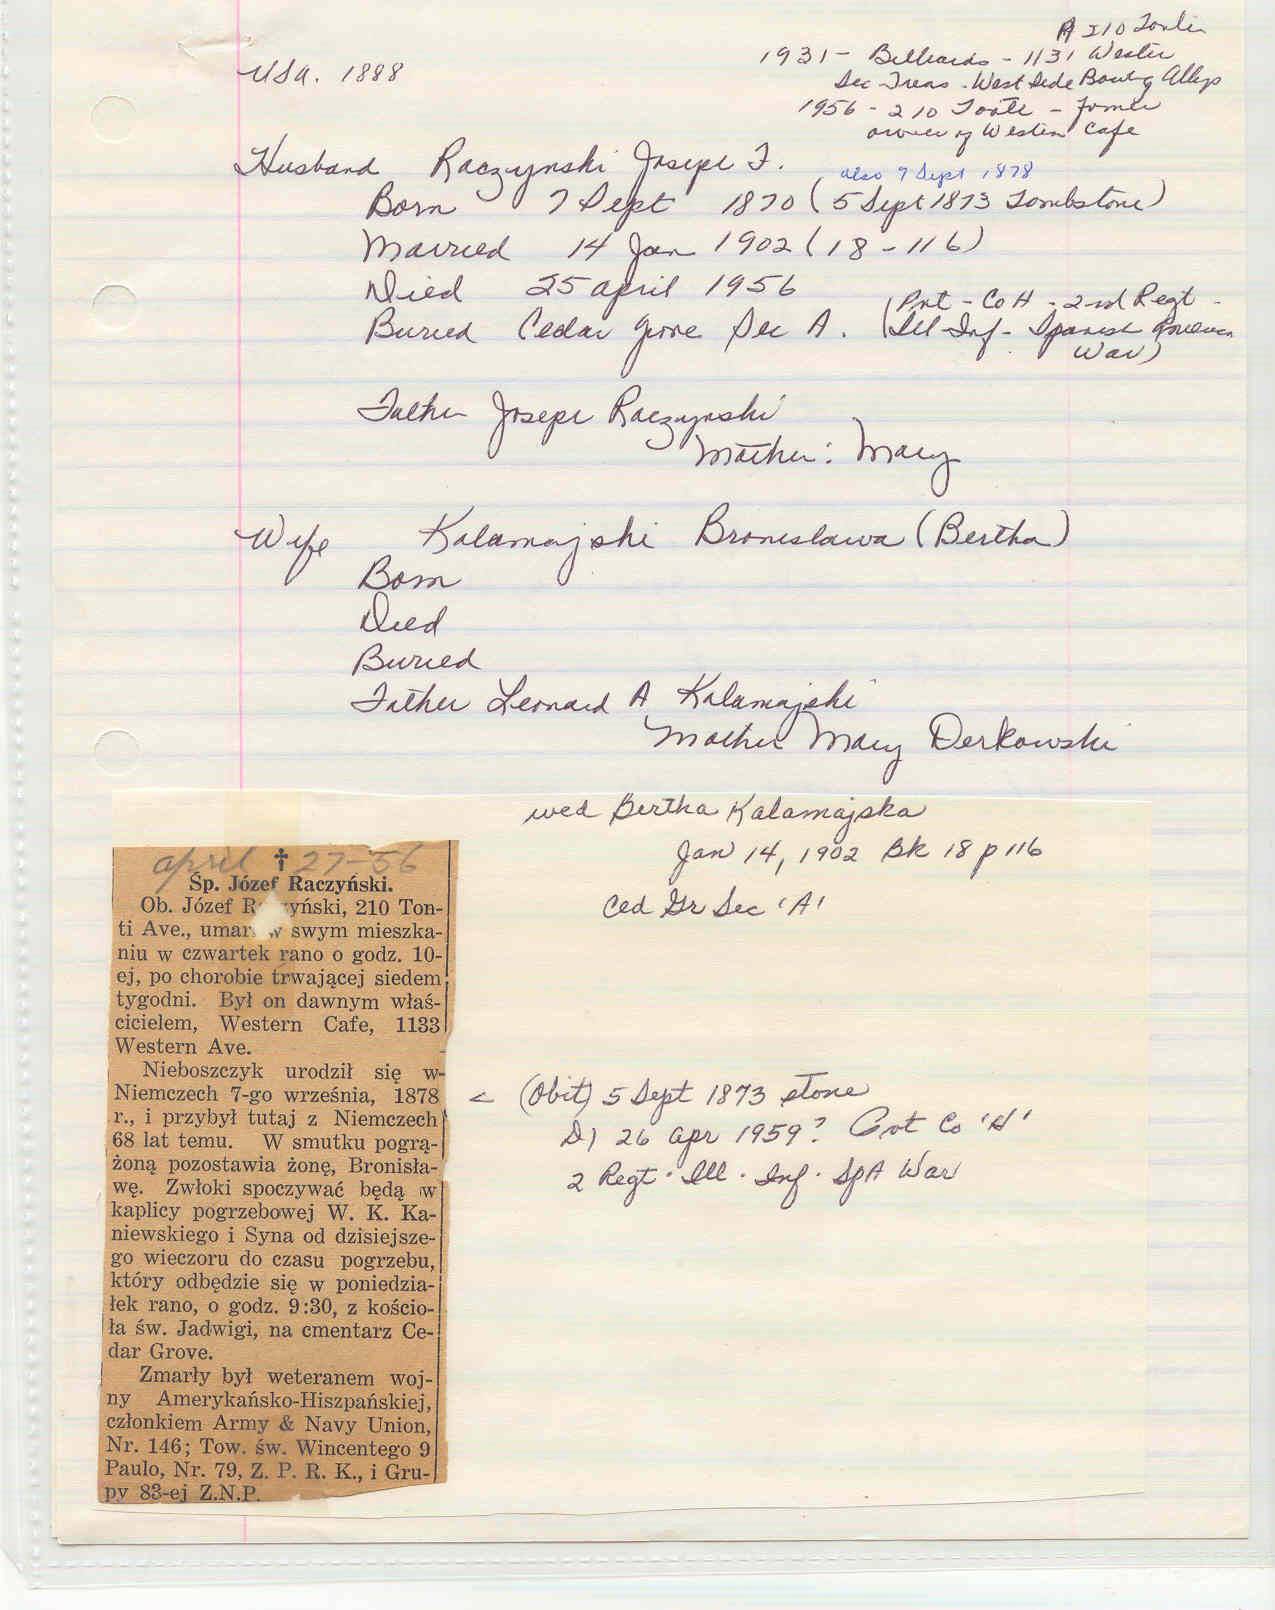 USA. 1888
R 210 Tonti
1931 - Billiards - 1131 Western
Sec Treas - West Side Bowlg Alleys
1956 - 210 Tonti - former
owner of Western Cafe
Husband Raczynski Joseph F.
also 7 Sept 1878
Born 7 Sept 1870 (5 Sept 1873 Tombstone)
Married 14 Jan 1902 (18-116)
Died 25 april 1956
Buried Cedar Grove Sec A. (Pvt - Co H - 2nd Regt -
Ill Inf - Spanish American
War)
Father Joseph Raczynski
Mother: Mary
Wife Kalamajski Bronislawa (Bertha)
Born
Died
Buried
Father Leonard A Kalamajski
Mother Mary Derkowski
wed Bertha Kalamajska
Jan 14, 1902 Bk 18 p 116
Ced Gr Sec 'A'
april 27-56
†
Śp. Józef Raczyński.
Ob. Józef R yński, 210 Ton-
ti Ave., umar w swym mieszka-
niu w czwartek rano o godz. 10-
ej, po chorobie trwającej siedem
tygodni. Był on dawnym właś-
cicielem, Western Cafe, 1133
Western Ave.
Nieboszczyk urodził się w
Niemczech 7-go września, 1878
r., i przybył tutaj z Niemczech
68 lat temu. W smutku pogrą-
żoną pozostawia żonę, Bronisła-
wę. Zwłoki spoczywać będą w
kaplicy pogrzebowej W. K. Ka-
niewskiego i Syna od dzisiejsze-
go wieczoru do czasu pogrzebu,
który odbędzie się w poniedzia-
łek rano, o godz. 9:30, z kościo-
ła św. Jadwigi, na cmentarz Ce-
dar Grove.
Zmarły był weteranem woj-
ny Amerykańsko-Hiszpańskiej,
członkiem Army & Navy Union,
Nr. 146; Tow. św. Wincentego 9
Paulo, Nr. 79, Z. P. R. K., i Gru-
py 83-ej Z.N.P.
< (Obit) 5 Sept 1873 stone
D) 26 apr 1959? Pvt Co 'H'
2 Regt. Ill. Inf. SpA War